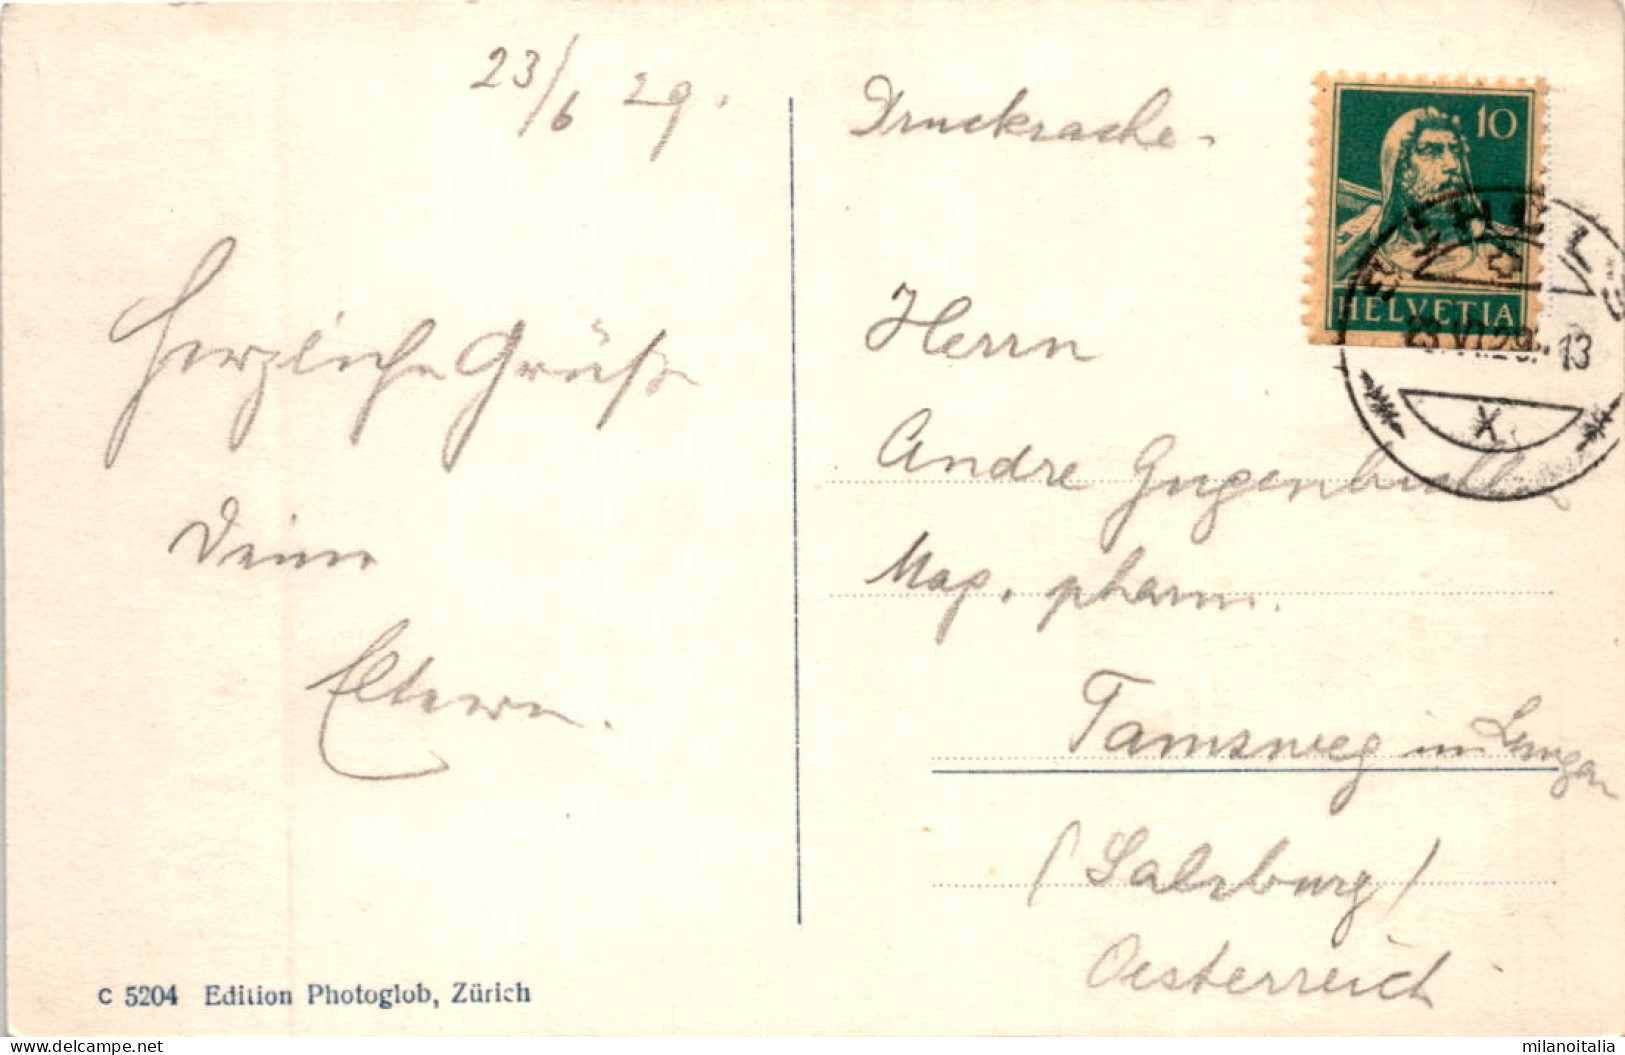 23/6 29.
Herzliche Grüße
Deine
Eltern.
C 5204 Edition Photoglob, Zürich
Drucksache.
10
HELVETIA
23.VI.29. 13
X
Herrn
Andre Gugenbichler
Mag. pharm.
Tamsweg im Lungau
(Salzburg)
Oesterreich
delcampe.net
milanoitalia